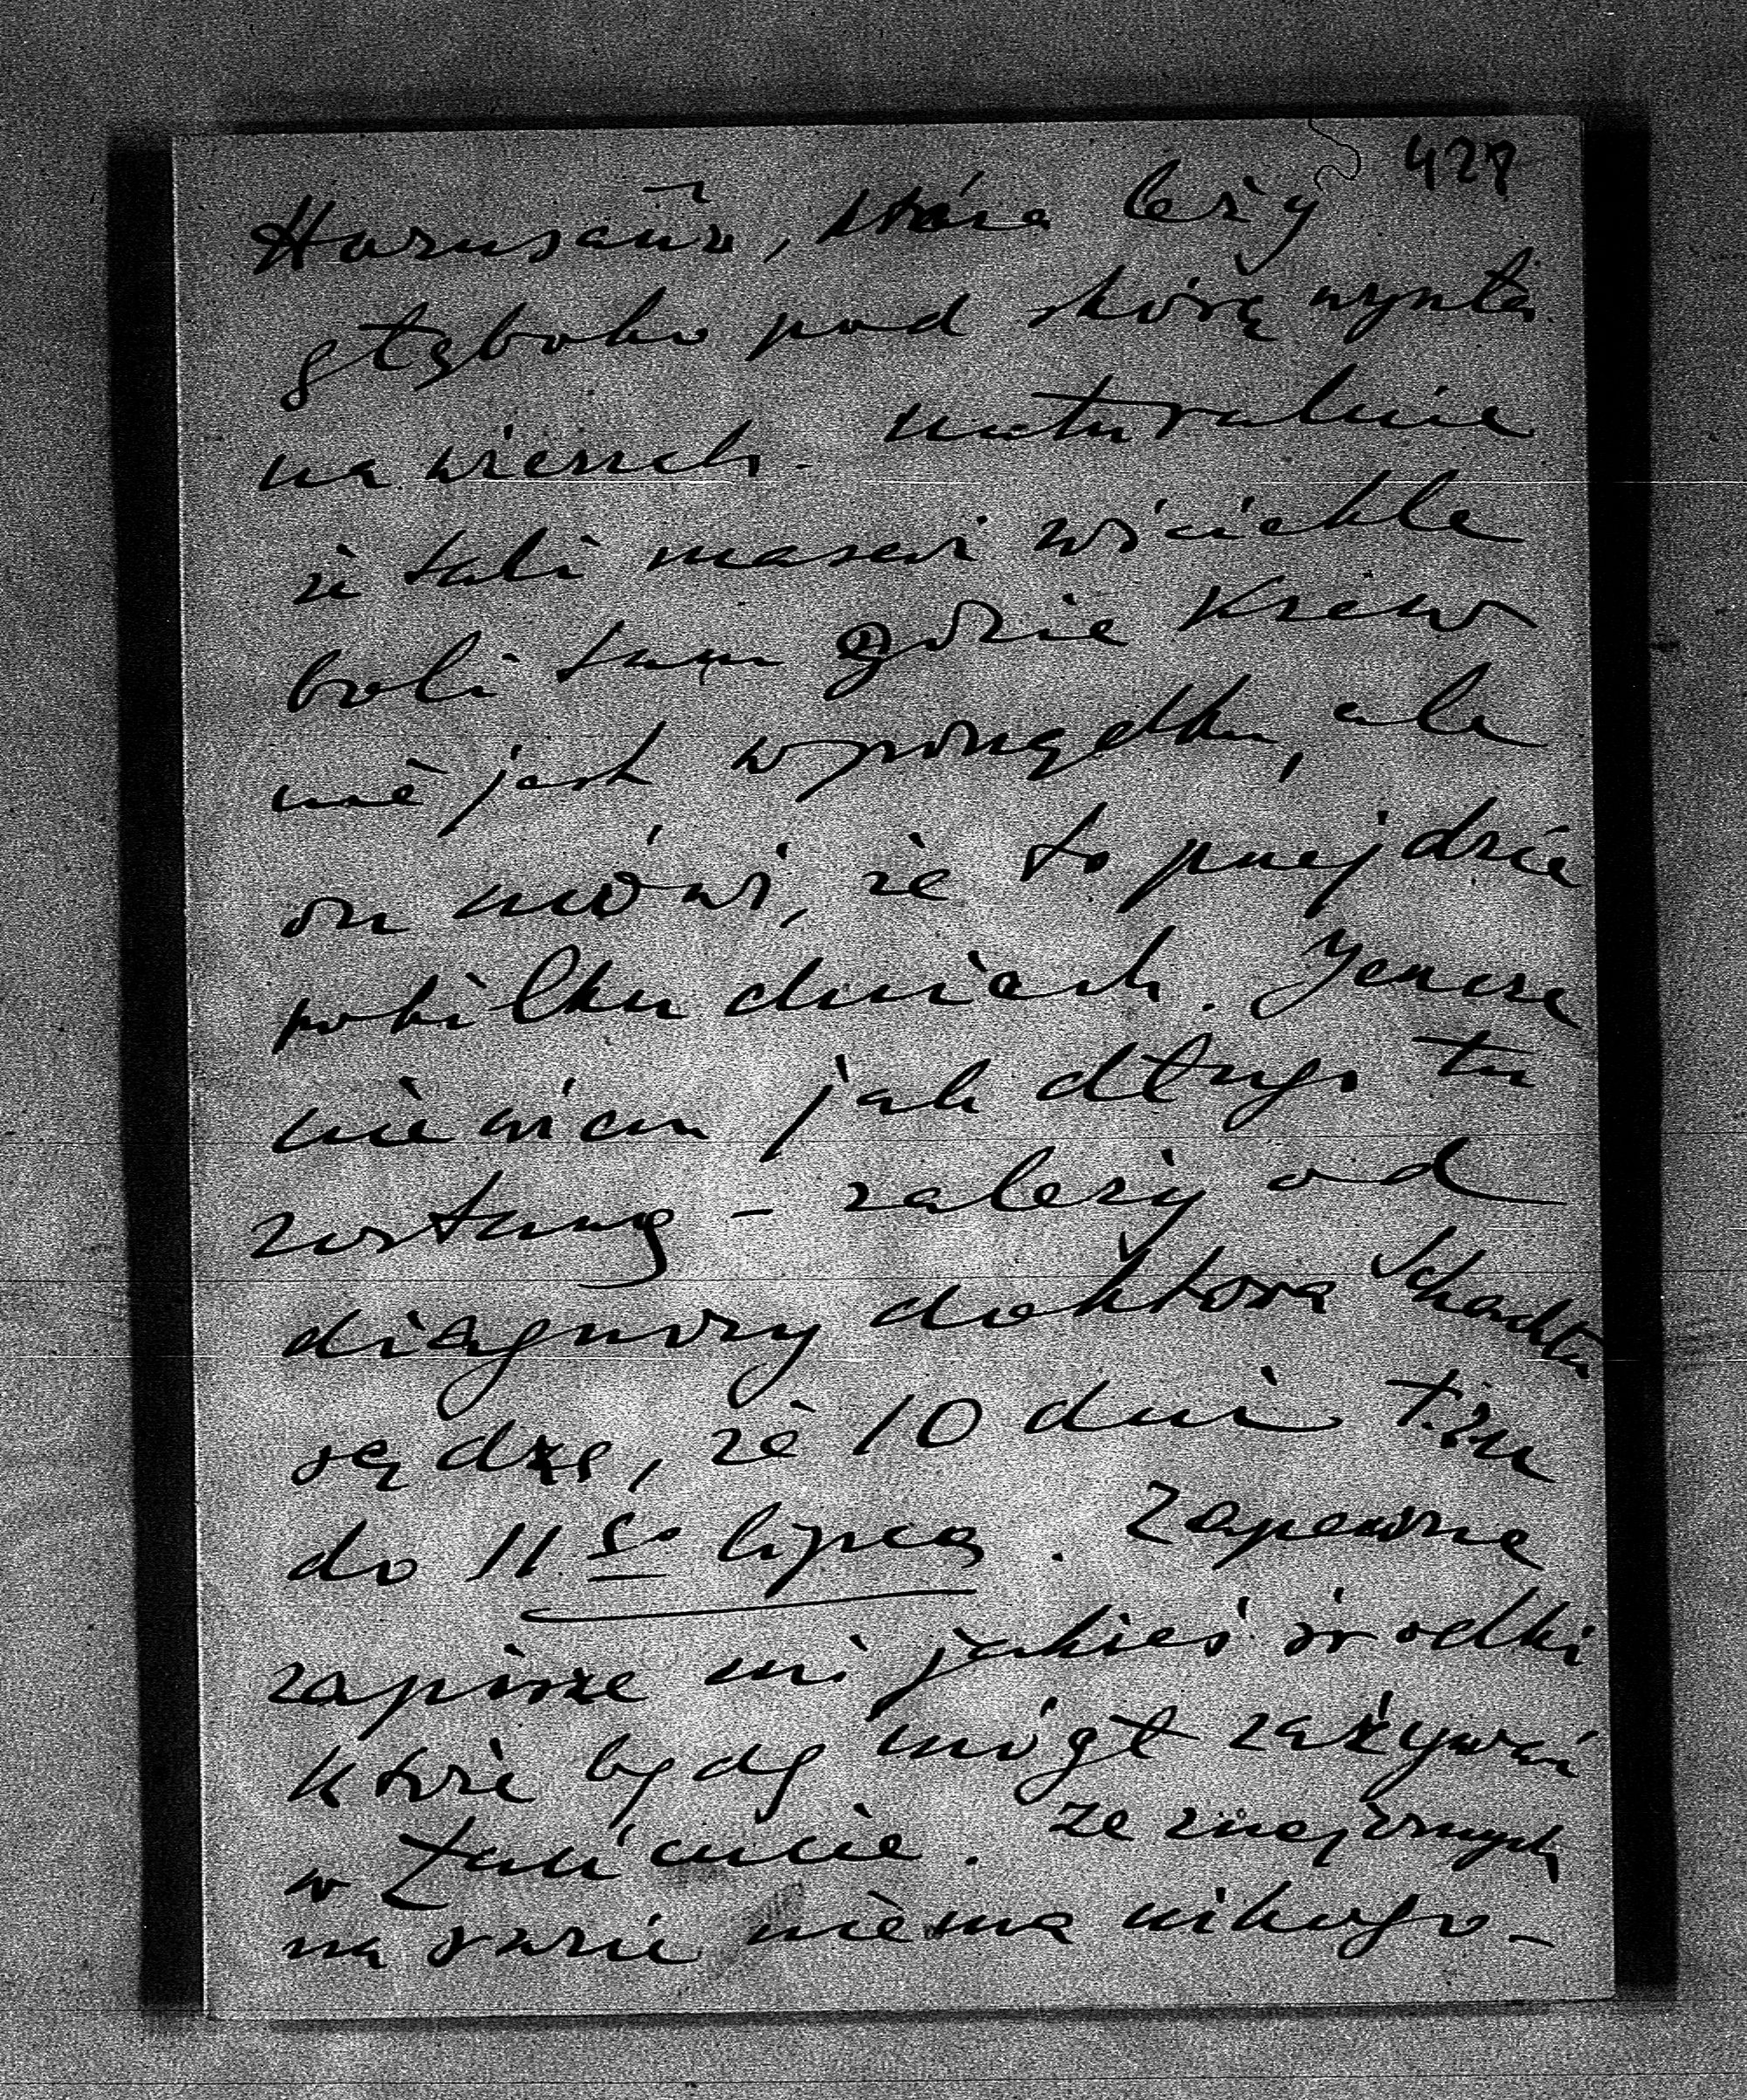 427
Harnsäure, która leży
głęboko pod skórą wyszła
na wierzch. naturalnie
że taki masaż wściekle
boli tam gdzie krew
nie jest w porządku, ale
on mówi, że to przejdzie
po kilku dniach. Jeszcze
nie wiem jak długo tu
zostanę – zależy od
diagnozy doktora Schachta
sądzę, że 10 dni t.zn
do 11go lipca. Zapewne
zapisze mi jakieś środki
które będę mógł zażywać
w Łańcucie. Ze znajomych
na razie niema nikogo –